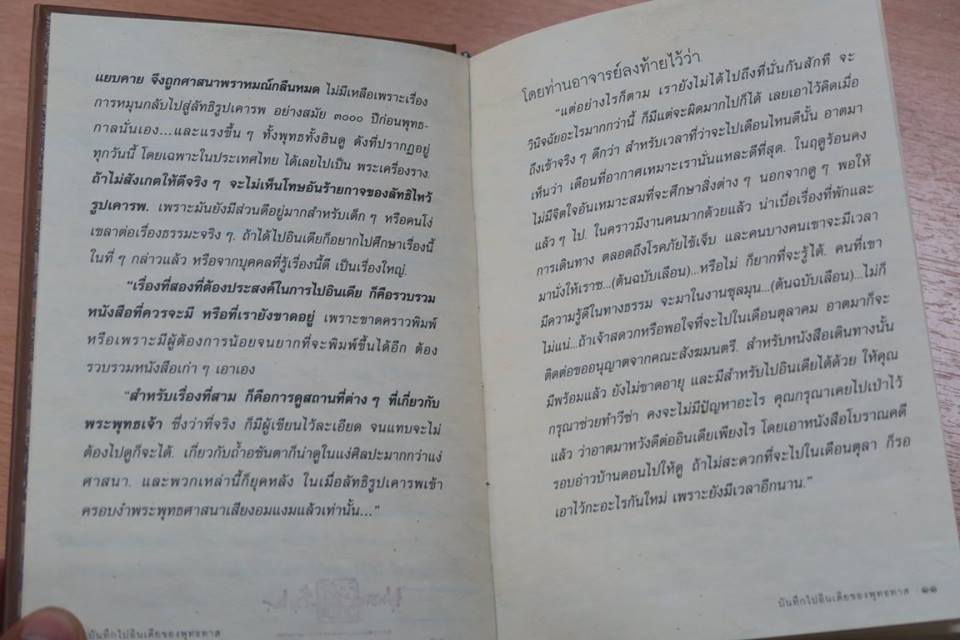 แยบคาย จึงถูกศาสนาพราหมณ์กลืนหมด ไม่มีเหลือเพราะเรื่อง
การหมุนกลับไปสู่ลัทธิรูปเคารพ อย่างสมัย ๓๐๐๐ ปีก่อนพุทธ-
กาลนั่นเอง...และแรงขึ้น ๆ ทั้งพุทธทั้งฮินดู ดังที่ปรากฏอยู่
ทุกวันนี้ โดยเฉพาะในประเทศไทย ได้เลยไปเป็น พระเครื่องราง.
ถ้าไม่สังเกตให้ดีจริง ๆ จะไม่เห็นโทษอันร้ายกาจของลัทธิไหว้
รูปเคารพ. เพราะมันยังมีส่วนดีอยู่มากสำหรับเด็ก ๆ หรือคนโง่
เขลาต่อเรื่องธรรมะจริง ๆ. ถ้าได้ไปอินเดียก็อยากไปศึกษาเรื่องนี้
ในที่ ๆ กล่าวแล้ว หรือจากบุคคลที่รู้เรื่องนี้ดี เป็นเรื่องใหญ่.
"เรื่องที่สองที่ต้องประสงค์ในการไปอินเดีย ก็คือรวบรวม
หนังสือที่ควรจะมี หรือที่เรายังขาดอยู่ เพราะขาดคราวพิมพ์
หรือเพราะมีผู้ต้องการน้อยจนยากที่จะพิมพ์ขึ้นได้อีก ต้อง
รวบรวมหนังสือเก่า ๆ เอาเอง
"สำหรับเรื่องที่สาม ก็คือการดูสถานที่ต่าง ๆ ที่เกี่ยวกับ
พระพุทธเจ้า ซึ่งว่าที่จริง ก็มีผู้เขียนไว้ละเอียด จนแทบจะไม่
ต้องไปดูก็จะได้. เกี่ยวกับถ้ำอชันตาก็น่าดูในแง่ศิลปะมากกว่าแง่
ศาสนา. และพวกเหล่านี้ก็ยุคหลัง ในเมื่อลัทธิรูปเคารพเข้า
ครอบงำพระพุทธศาสนาเสียงอมแงมแล้วเท่านั้น..."
บันทึกไปอินเดียของพุทธทาส
โดยท่านอาจารย์ลงท้ายไว้ว่า
"แต่อย่างไรก็ตาม เรายังไม่ได้ไปถึงที่นั่นกันสักที จะ
วินิจฉัยอะไรมากกว่านี้ ก็มีแต่จะผิดมากไปก็ได้ เลยเอาไว้คิดเมื่อ
ถึงเข้าจริง ๆ ดีกว่า สำหรับเวลาที่ว่าจะไปเดือนไหนดีนั้น อาตมา
เห็นว่า เดือนที่อากาศเหมาะเรานั่นแหละดีที่สุด. ในฤดูร้อนคง
ไม่มีจิตใจอันเหมาะสมที่จะศึกษาสิ่งต่าง ๆ นอกจากดู ๆ พอให้
แล้ว ๆ ไป. ในคราวมีงานคนมากด้วยแล้ว น่าเบื่อเรื่องที่พักและ
การเดินทาง ตลอดถึงโรคภัยไข้เจ็บ และคนบางคนเขาจะมีเวลา
มานั่งให้เราซ...(ต้นฉบับเลือน)...หรือไม่ ก็ยากที่จะรู้ได้. คนที่เขา
มีความรู้ดีในทางธรรม จะมาในงานชุลมุน...(ต้นฉบับเลือน)...ไม่ก็
ไม่แน่...ถ้าเจ้าสดวกหรือพอใจที่จะไปในเดือนตุลาคม อาตมาก็จะ
ติดต่อขออนุญาตจากคณะสังฆมนตรี. สำหรับหนังสือเดินทางนั้น
มีพร้อมแล้ว ยังไม่ขาดอายุ และมีสำหรับไปอินเดียได้ด้วย ให้คุณ
กรุณาช่วยทำวีซ่า คงจะไม่มีปัญหาอะไร คุณกรุณาเคยไปเป่าไว้
แล้ว ว่าอาตมาหวังดีต่ออินเดียเพียงไร โดยเอาหนังสือโบราณคดี
รอบอ่าวบ้านดอนไปให้ดู ถ้าไม่สะดวกที่จะไปในเดือนตุลา ก็รอ
เอาไว้กะอะไรกันใหม่ เพราะยังมีเวลาอีกนาน."
บันทึกไปอินเดียของพุทธทาส ๑๑